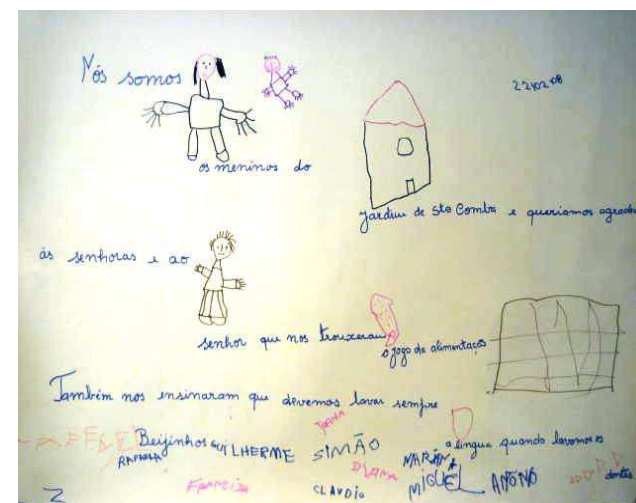 Nós somos
22/02/08
os meninos do
jardim de Sta Comba e queriamos agradec
ás senhoras e ao
senhor que nos trouxeram
o jogo de alimentação
Também nos ensinaram que devemos lavar sempre
a lingua quando lavamos os
dentes
Beijinhos GUILHERME
SIMÃO
RAFAELA
DIANA
MARIANA
FRANCISCA
CLAUDIO
MIGUEL